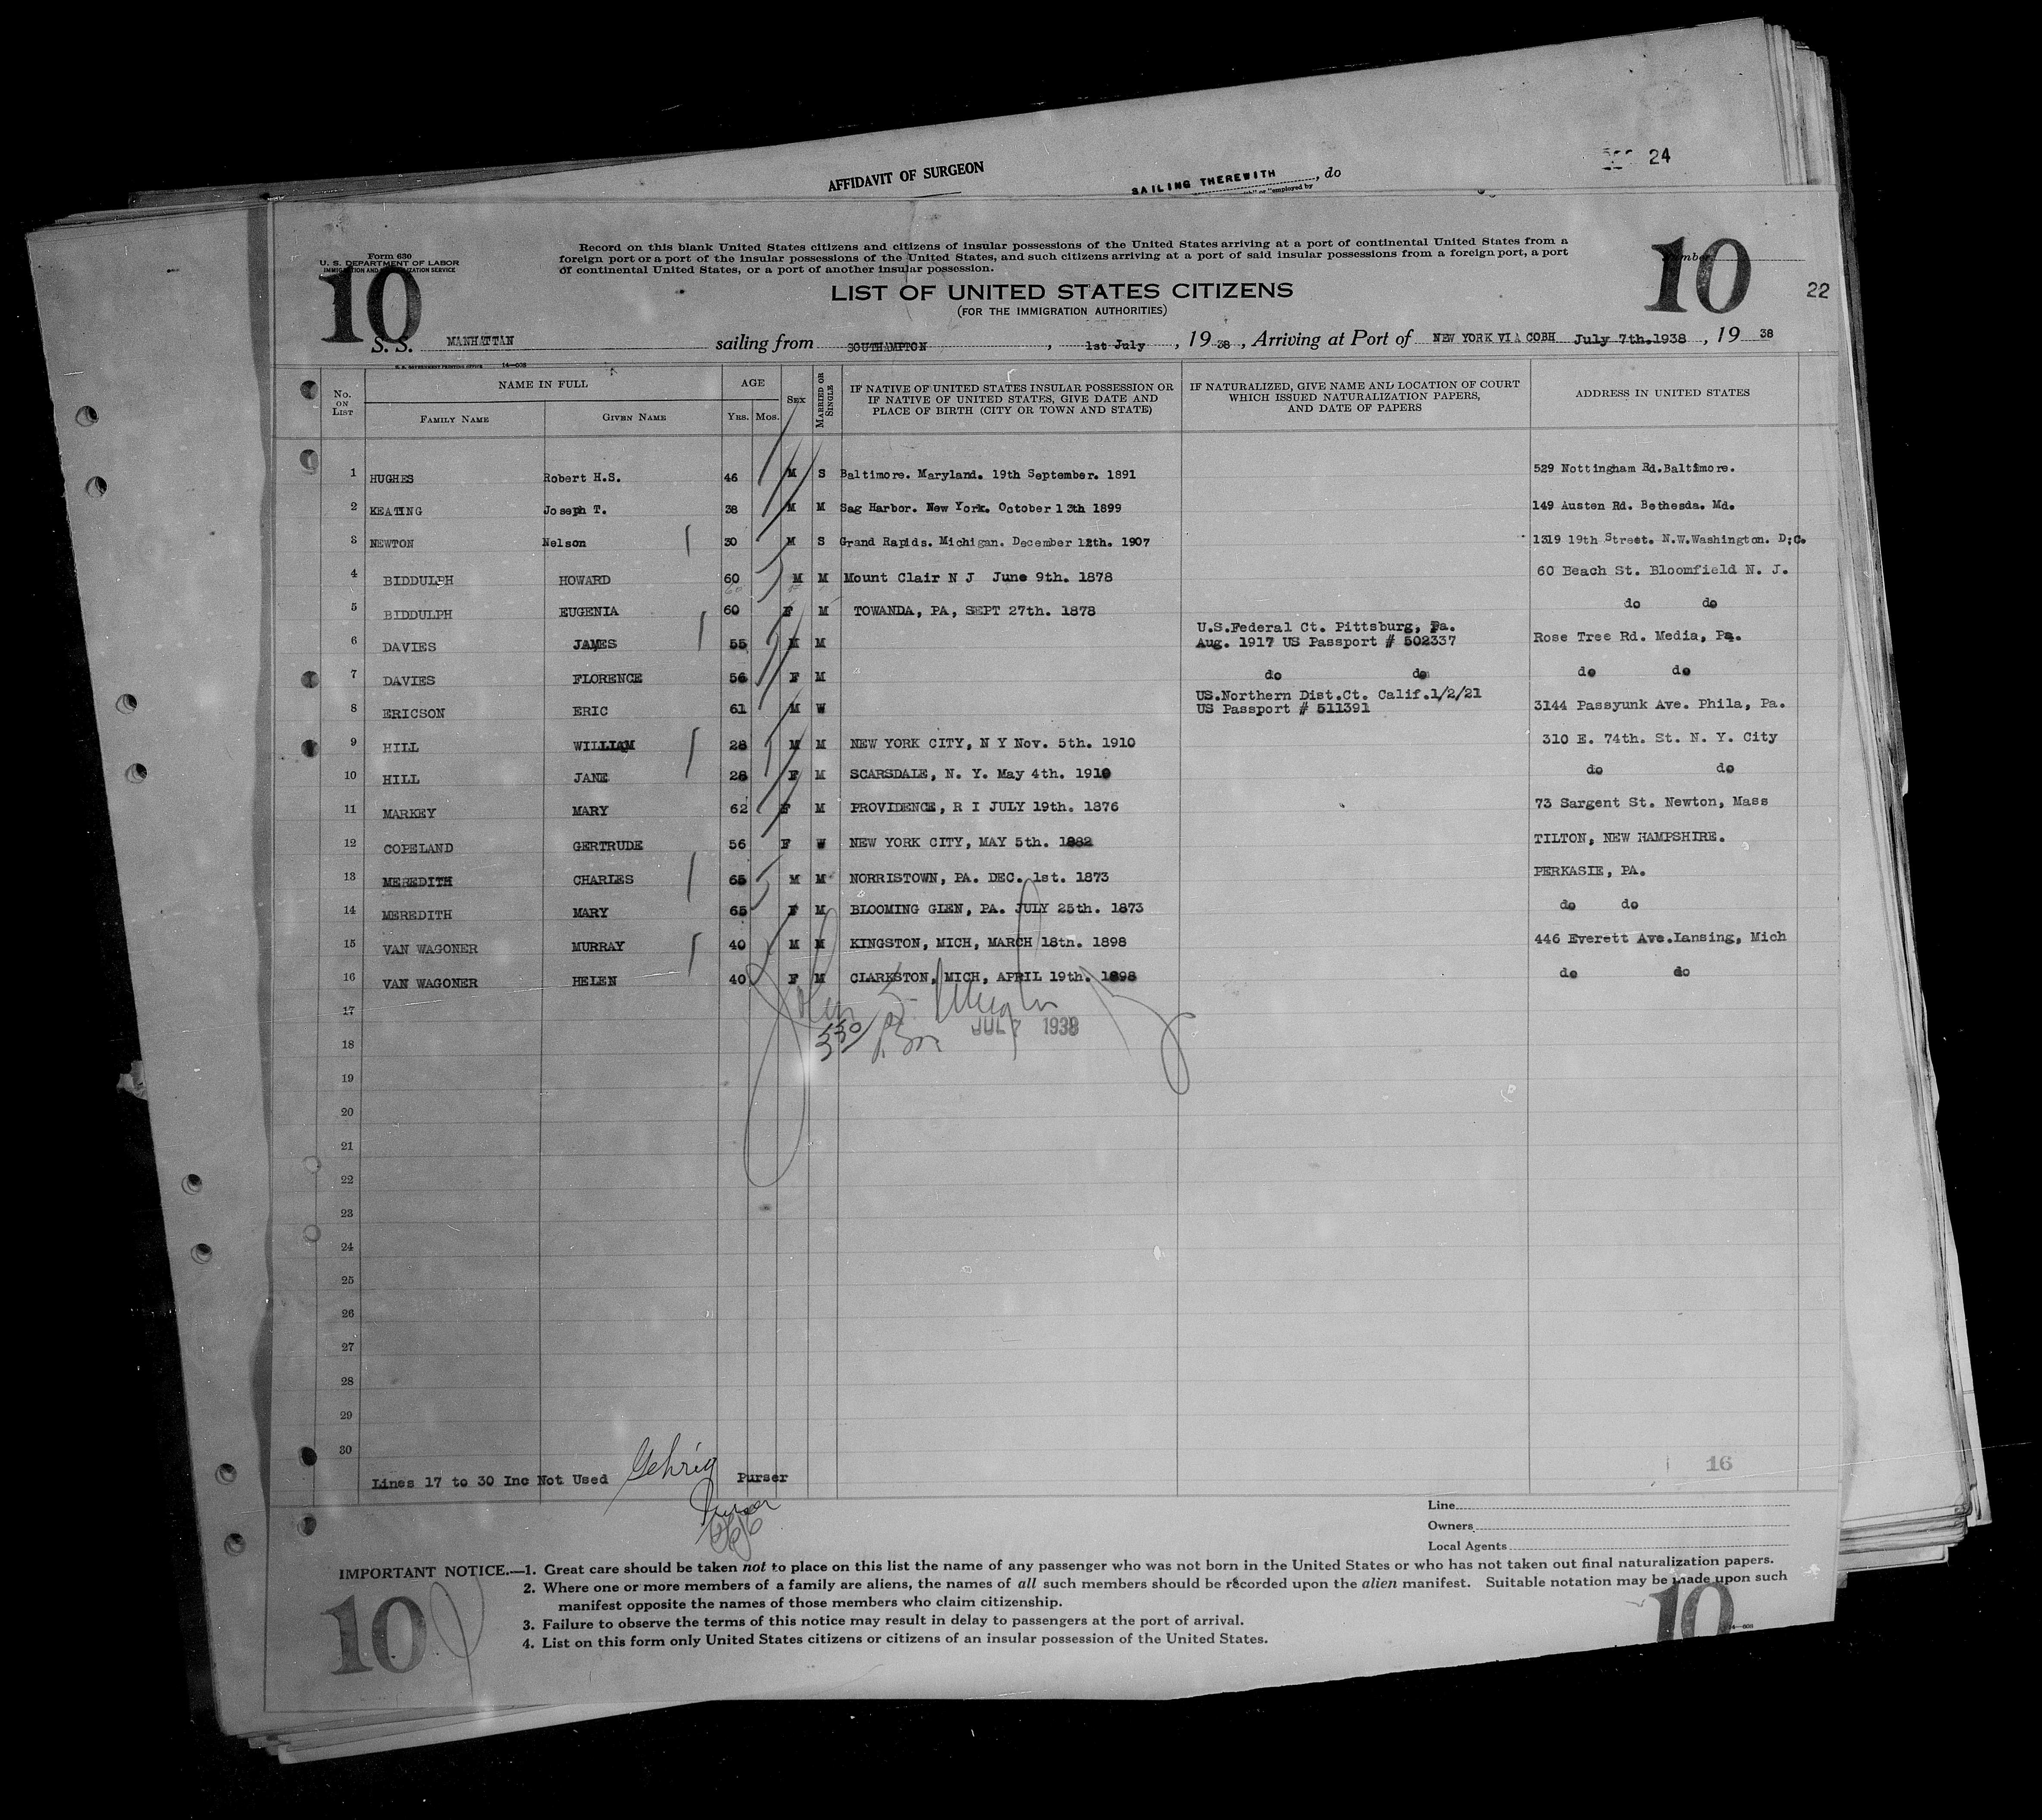 24
AFFIDAVIT OF SURGEON
SAILING THEREWITH, do
Form 630
U. S. DEPARTMENT OF LABOR
Record on this blank United States citizens and citizens of insular possessions of the United States arriving at a port of continental United States from a
foreign port or a port of the insular possessions of the United States, and such citizens arriving at a port of said insular possessions from a foreign port, a port
of continental United States, or a port of another insular possession.
10
10
22
LIST OF UNITED STATES CITIZENS
(FOR THE IMMIGRATION AUTHORITIES)
S. S. MANHATTAN sailing from SOUTHAMPTON, 1st July, 19 38, Arriving at Port of NEW YORK VIA COBH July 7th.1938, 19 38
U. S. GOVERNMENT PRINTING OFFICE 14—608
No. ON LIST
NAME IN FULL
FAMILY NAME
GIVEN NAME
AGE
YRS. MOS.
SEX
MARRIED OR SINGLE
IF NATIVE OF UNITED STATES INSULAR POSSESSION OR
IF NATIVE OF UNITED STATES, GIVE DATE AND
PLACE OF BIRTH (CITY OR TOWN AND STATE)
IF NATURALIZED, GIVE NAME AND LOCATION OF COURT
WHICH ISSUED NATURALIZATION PAPERS,
AND DATE OF PAPERS
ADDRESS IN UNITED STATES
1 HUGHES Robert H.S. 46 M S Baltimore. Maryland. 19th September. 1891 529 Nottingham Rd.Baltimore.
2 KEATING Joseph T. 38 M M Sag Harbor. New York. October 13th 1899 149 Austen Rd. Bethesda. Md.
3 NEWTON Nelson 30 M S Grand Rapids. Michigan. December 12th. 1907 1319 19th Street. N.W.Washington. D.C.
4 BIDDULPH HOWARD 60 M M Mount Clair N J June 9th. 1878 60 Beach St. Bloomfield N. J.
5 BIDDULPH EUGENIA 60 F M TOWANDA, PA, SEPT 27th. 1878 do do
6 DAVIES JAMES 55 M M U.S.Federal Ct. Pittsburg, Pa.
Aug. 1917 US Passport # 502337 Rose Tree Rd. Media, Pa.
7 DAVIES FLORENCE 56 F M do do do do
8 ERICSON ERIC 61 M W US.Northern Dist.Ct. Calif.1/2/21
US Passport # 511391 3144 Passyunk Ave. Phila, Pa.
9 HILL WILLIAM 28 M M NEW YORK CITY, N Y Nov. 5th. 1910 310 E. 74th. St. N. Y. City
10 HILL JANE 28 F M SCARSDALE, N. Y. May 4th. 1910 do do
11 MARKEY MARY 62 F M PROVIDENCE, R I JULY 19th. 1876 73 Sargent St. Newton, Mass
12 COPELAND GERTRUDE 56 F W NEW YORK CITY, MAY 5th. 1882 TILTON, NEW HAMPSHIRE.
13 MEREDITH CHARLES 65 M M NORRISTOWN, PA. DEC. 1st. 1873 PERKASIE, PA.
14 MEREDITH MARY 65 F M BLOOMING GLEN, PA. JULY 25th. 1873 do do
15 VAN WAGONER MURRAY 40 M M KINGSTON, MICH, MARCH 18th. 1898 446 Everett Ave.Lansing, Mich
16 VAN WAGONER HELEN 40 F M CLARKSTON, MICH, APRIL 19th. 1898 do do
17
JUL 7 1938
18
19
20
21
22
23
24
25
26
27
28
29
30
16
Lines 17 to 30 Inc Not Used Gehrig Purser
Purser
Line
Owners
Local Agents
IMPORTANT NOTICE.—1. Great care should be taken not to place on this list the name of any passenger who was not born in the United States or who has not taken out final naturalization papers.
2. Where one or more members of a family are aliens, the names of all such members should be recorded upon the alien manifest. Suitable notation may be made upon such
manifest opposite the names of those members who claim citizenship.
3. Failure to observe the terms of this notice may result in delay to passengers at the port of arrival.
4. List on this form only United States citizens or citizens of an insular possession of the United States.
10
10